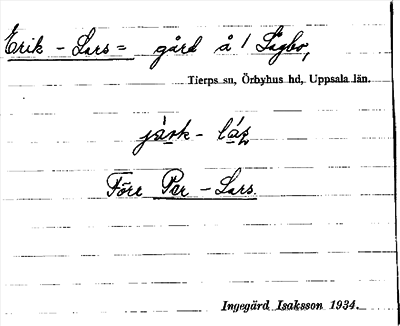 Erik - Lars = gård å / Sågbo,
Tierps sn, Örbyhus hd, Uppsala län.
Före Per - Lars.
Ingegärd Isaksson 1934.